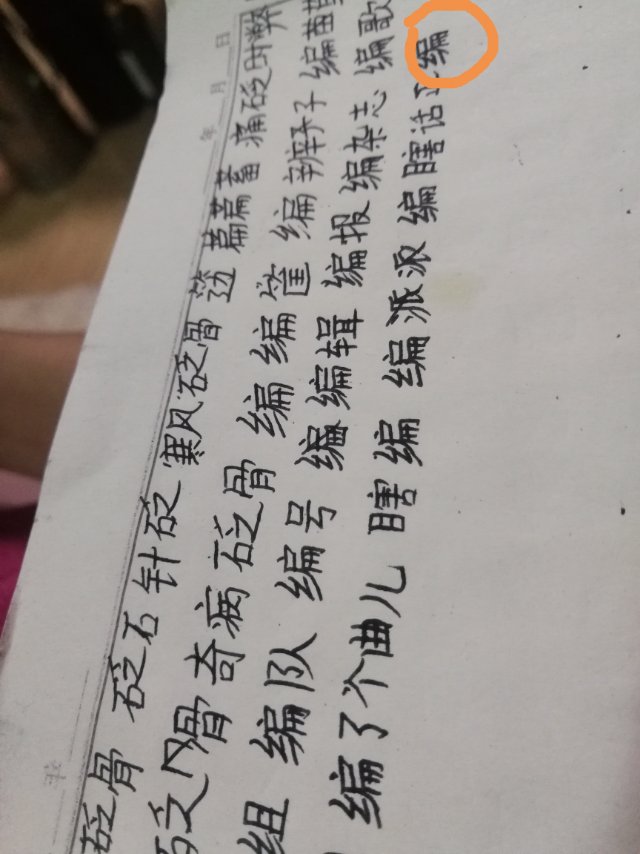 年 月 日
砭骨 砭石 针砭 寒风砭骨 笾 萹萹蓄 痛砭时弊
砭人骨奇病砭骨 编编筐 编辫子 编苗
组 编队 编号 编编辑 编报 编杂志 编歌
编了个曲儿 瞎编 编派派 编瞎话 汇编